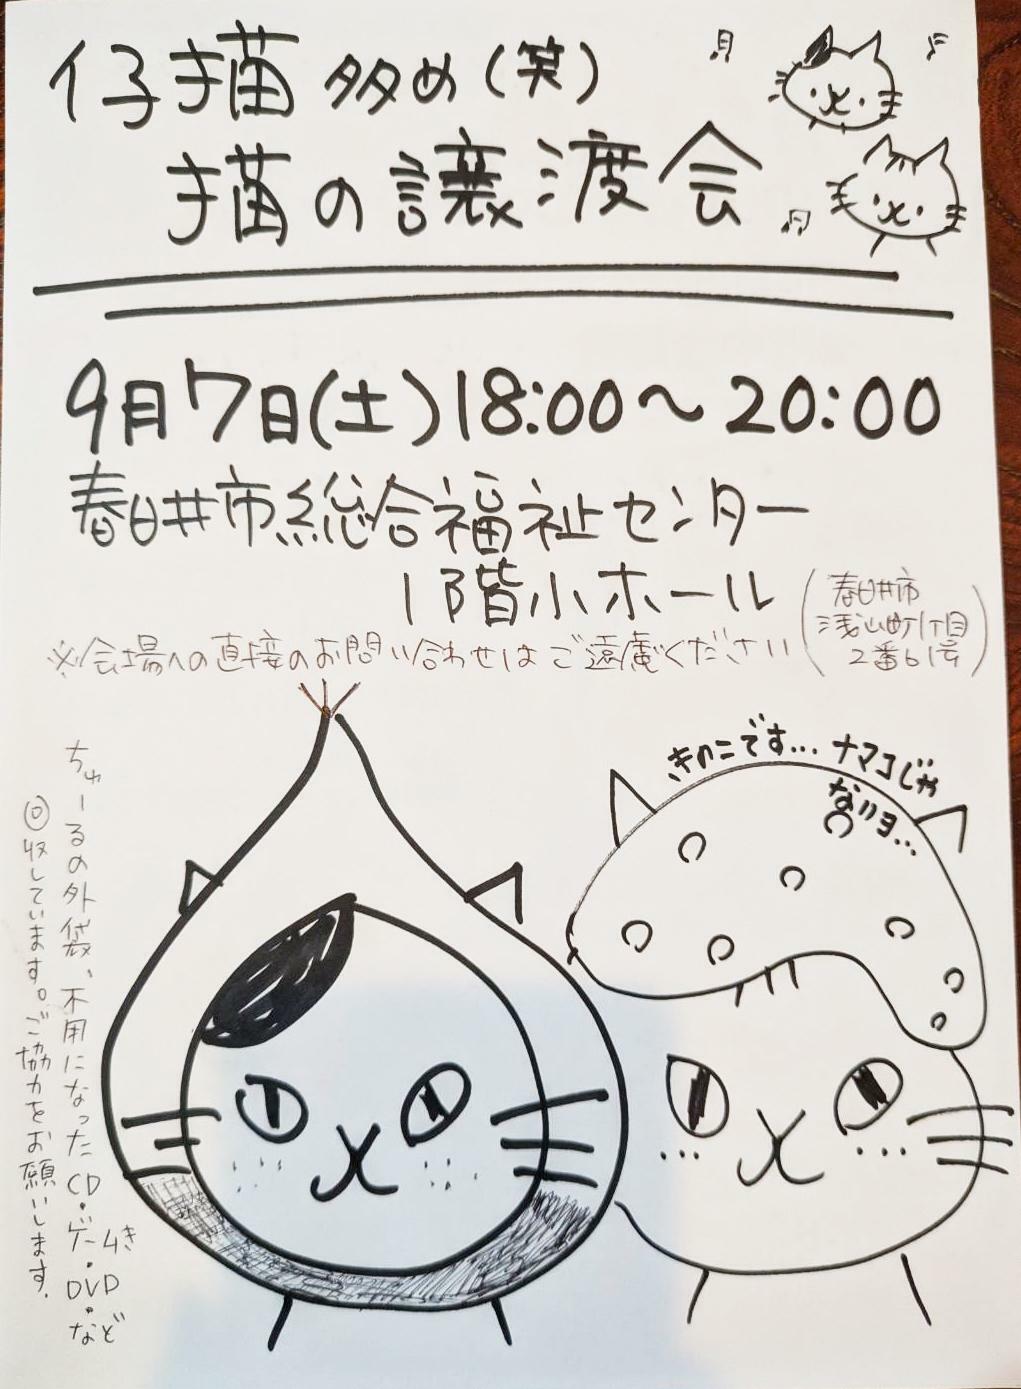 仔猫多め(笑)
猫の譲渡会
9月7日(土)18:00〜20:00
春日井市総合福祉センター
1階小ホール
(春日井市
浅山町1丁目
2番61号)
※会場への直接のお問い合わせはご遠慮ください
きのこです...ナマコじゃ
ないヨ...
ちゅーるの外袋、不用になったCD・ゲーム・DVD・など
回収しています。ご協力をお願いします。